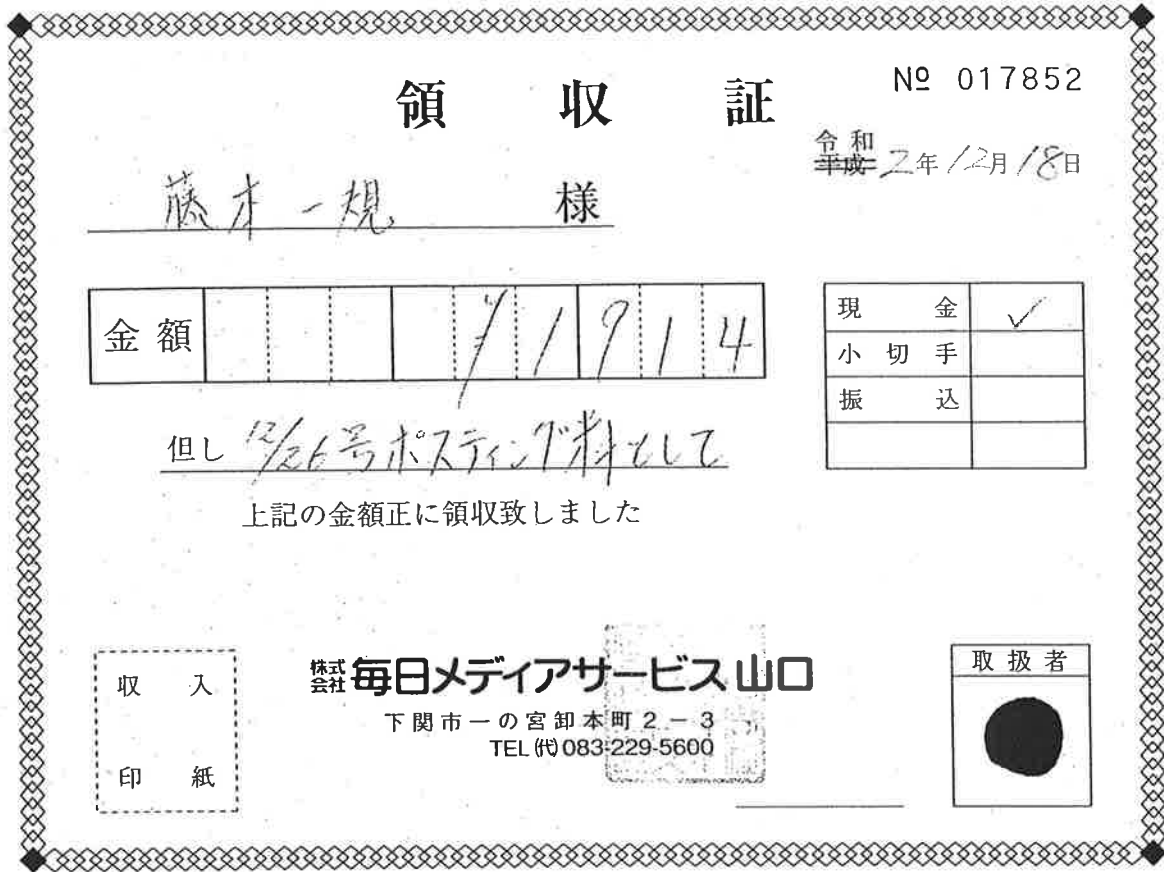 領収証
№ 017852
令和
平成 2年12月18日
藤本一規 様
金額 ¥1914
現金 ✓
小切手
振込
但し 12/26号ポスティング料として
上記の金額正に領収致しました
収入
印紙
株式会社 毎日メディアサービス山口
下関市一の宮卸本町2-3
TEL(代)083-229-5600
取扱者